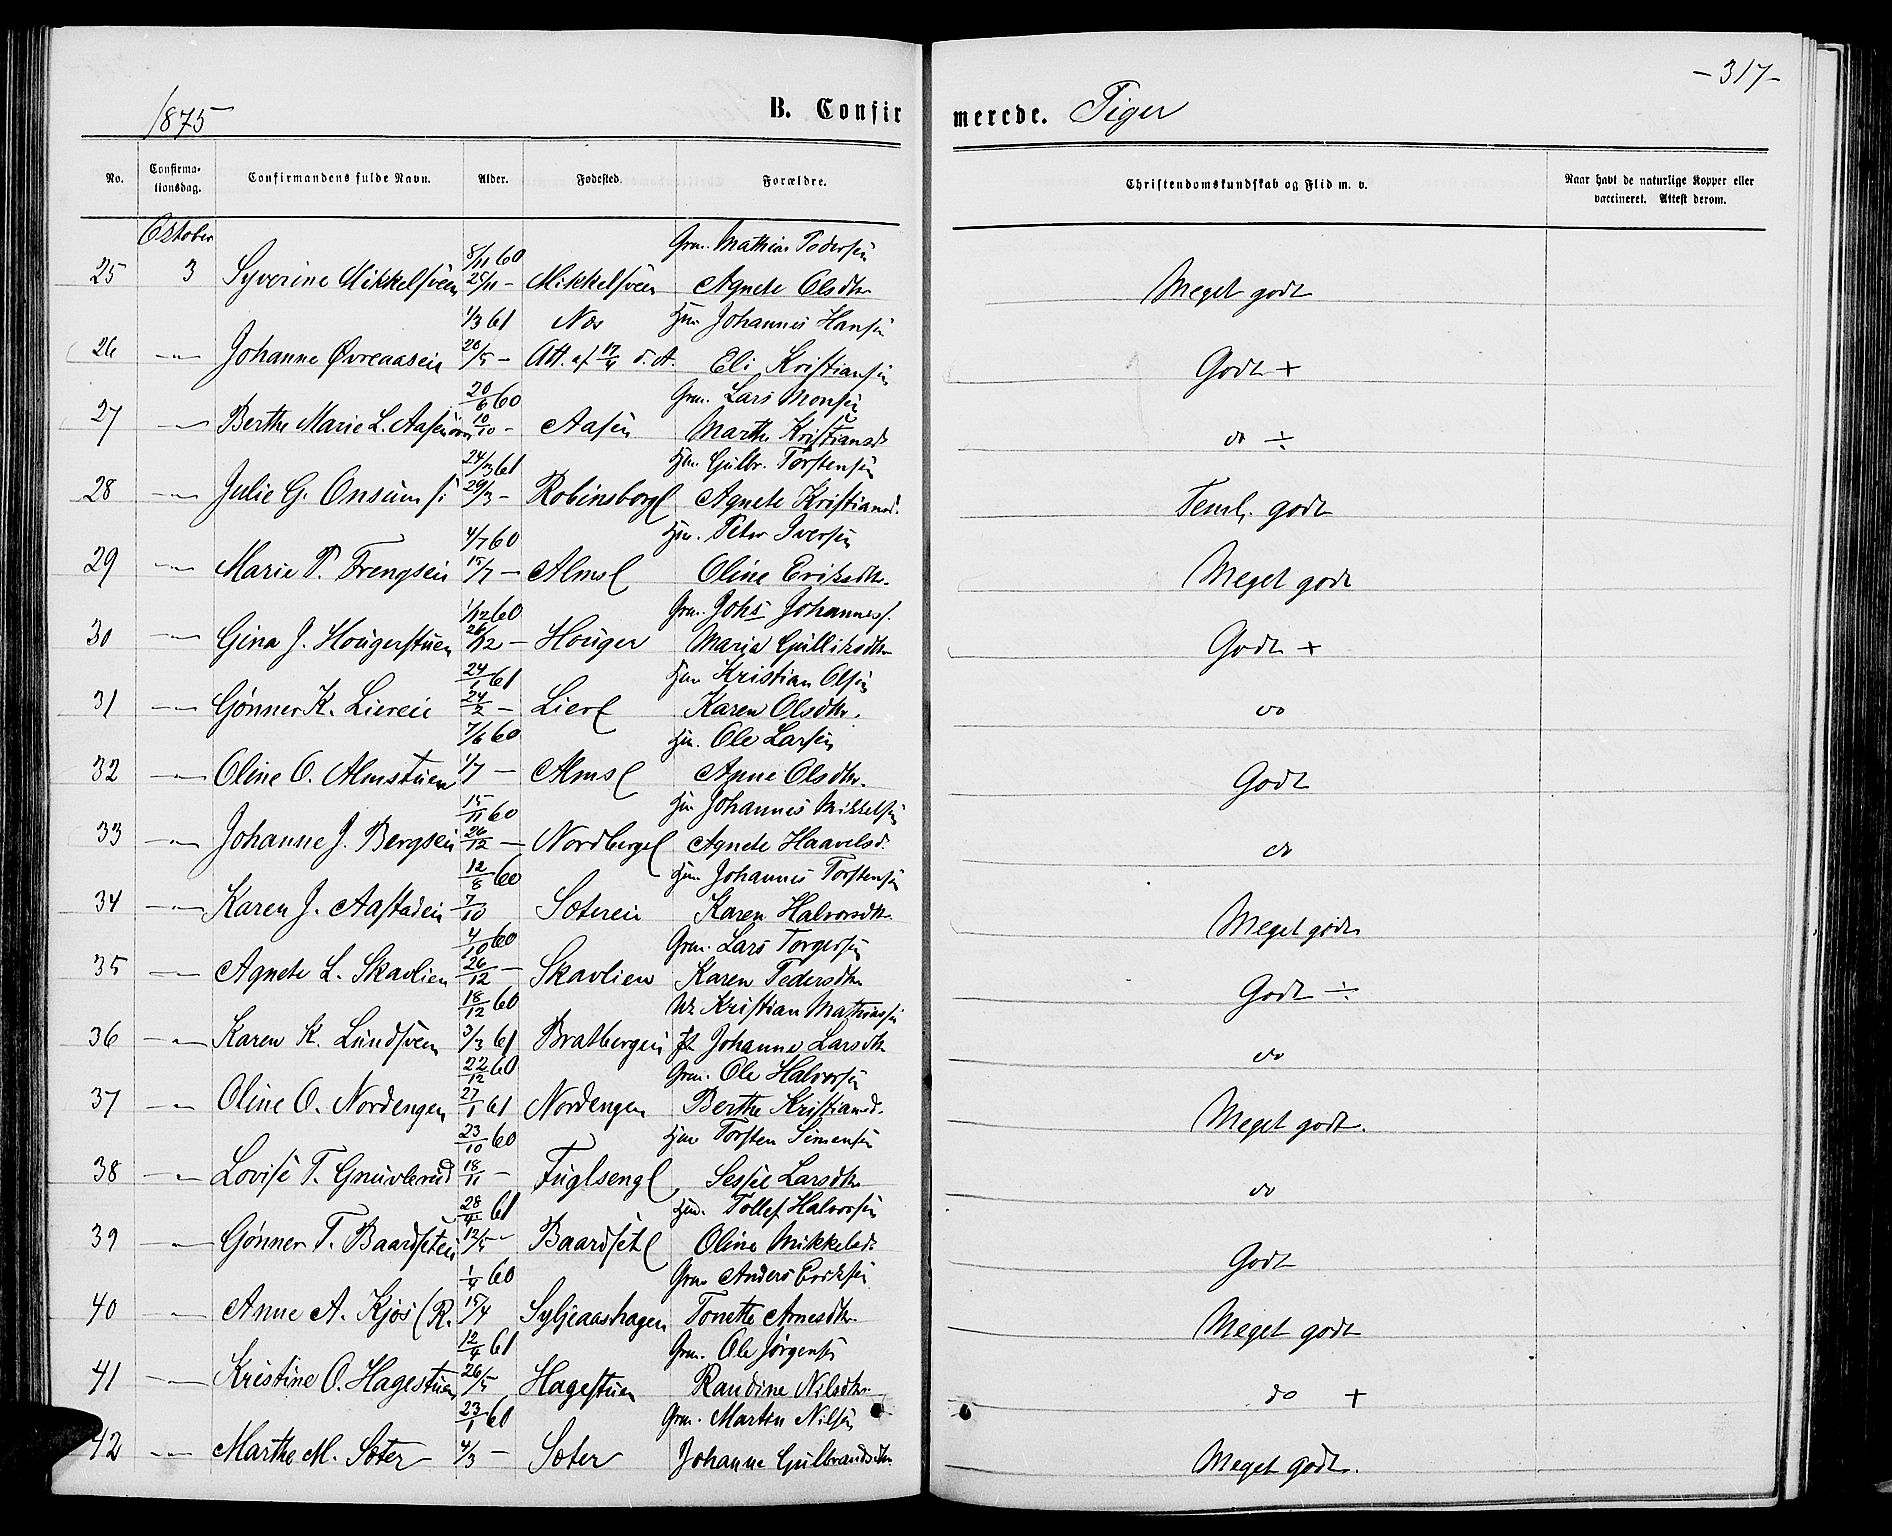 -317-
1875 B. Confirmerede. Piger
No. Confirmationsdag. Confirmandens fulde Navn. Alder. Fødested. Forældre. Christendomskundskab og Flid m. v. Naar havt de naturlige Kopper eller vaccineret. Attest derom.
October
8/11 60 Grm. Mathias Pedersen
25 3 Syverine Mikkelsveen 25/11 - Mikkelsveen Agnete Olsdtr. Meget godt
1/3 61 Næs Hm. Johannes Hansen
26 -"- Johanne Øvreaasen 20/5 - Att. af 17/4 d. A. Eli Kristiansen Godt +
20/6 60 Grm. Lars Monsen
27 -"- Berthe Marie L. Aasen 10/10 - Aasen Marthe Kristiansd. do ÷
24/3 61 Hm. Gulbr. Torstensen
28 -"- Julie G. Onsum 29/3 - Robinsborg Agnete Kristiansd. Teml. godt
4/7 60 Hm. Peter Iversen
29 -"- Marie P. Frengsen 15/7 - Alms Oline Eriksdtr. Meget godt
1/12 60 Grm. Johs Johanness.
30 -"- Gina J. Hougerstuen 26/12 - Houger Maria Gulliksdtr. Godt +
24/1 61 Hm. Kristian Olsen
31 -"- Gønner K. Liereie 24/2 - Lier Karen Olsdtr. do
7/6 60 Hm. Ole Larsen
32 -"- Oline O. Almstuen 1/7 - Alms Anne Olsdtr. Godt
15/11 60 Hm. Johannes Mikkelsen
33 -"- Johanne J. Bergseie 26/12 - Nordberg Agnete Haavelsd. do
12/8 60 Hm. Johannes Torstensen
34 -"- Karen J. Aastadeie 7/10 Sætereie Karen Halvorsdtr. Meget godt
4/10 60 Grm. Lars Torgersen
35 -"- Agnete L. Skavlien 26/12 - Skavlien Karen Pedersdtr. Godt ÷
18/12 60 Kristian Mathiassen
36 -"- Karen K. Lundsveen 3/3 61 Bratbergeie Johanne Larsdtr. do
22/12 60 Grm. Ole Halvorsen
37 -"- Oline O. Nordengen 27/1 61 Nordengen Berthe Kristiansd. Meget godt.
23/10 60 Hm. Torsten Simensen
38 -"- Lovise T. Gnuvlerud 18/11 - Fuglseng Sessil Larsdtr. do
28/4 61 Hm. Tollef Halvorsen
39 -"- Gønner T. Baardseteie 12/5 - Baardset Oline Mikkelsd. Godt
1/4 60 Grm. Anders Eriksen
40 -"- Anne A. Kjos (R. 15/4 Syljeaashagen Tonette Arnesdtr. Meget godt
12/4 61 Grm. Ole Jørgensen
41 -"- Kristine O. Hagestuen 26/5 Hagestuen Randine Nilsdtr. do +
23/1 60 Grm. Martin Nilsen
42 -"- Marthe M. Sæter 4/3 - Sæter Johanne Gulbrandsdtr. Meget godt.